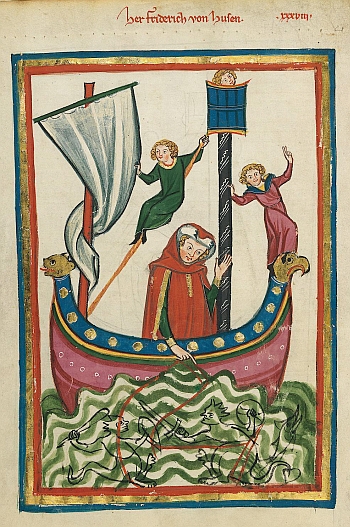 Her Friderich von Husen. xxxviii